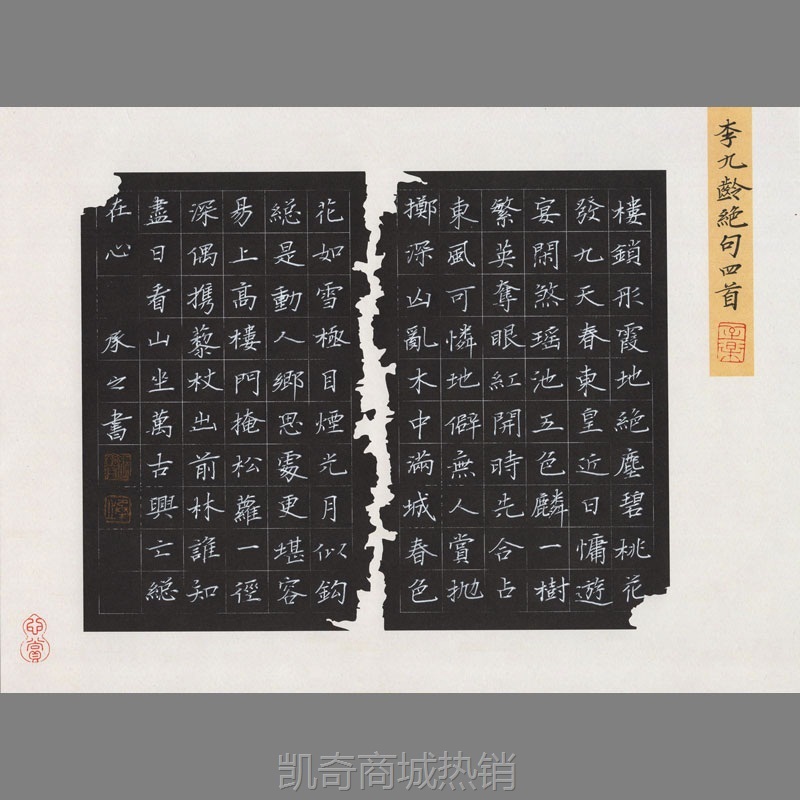 李九齡絶句四首
樓鎖彤霞地絶塵碧桃花
發九天春東皇近日慵遊
宴閑煞瑶池五色麟一樹
繁英奪眼紅開時先合占
東風可憐地僻無人賞抛
擲深山亂木中滿城春色
花如雪極目煙光月似鈎
総是動人鄉思處更堪容
易上高樓門掩松蘿一徑
深偶携藜杖出前林誰知
盡日看山坐萬古興亡総
在心 承之書
凯奇商城热销